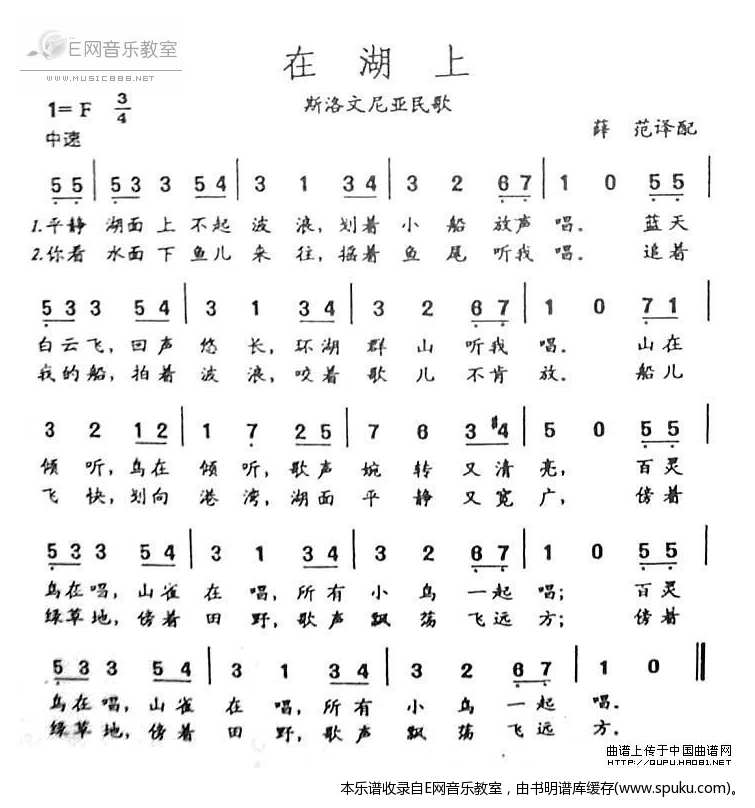 E网音乐教室
WWW.MUSIC888.NET
在 湖 上
1= F 3/4
斯洛文尼亚民歌
中速
薛 范译配
5 5 | 5 3 3 5 4 | 3 1 3 4 | 3 2 6 7 | 1 0 5 5 |
1.平静 湖面 上 不起 波 浪, 划着 小 船 放声 唱. 蓝天
2.你看 水面 下 鱼儿 来 往, 摇着 鱼 尾 听我 唱. 追着
5 3 3 5 4 | 3 1 3 4 | 3 2 6 7 | 1 0 7 1 |
白云飞, 回声 悠 长, 环湖 群 山 听我 唱. 山在
我的船, 拍着 波 浪, 咬着 歌 儿 不肯 放. 船儿
3 2 1 2 | 1 7 2 5 | 7 6 3 #4 | 5 0 5 5 |
倾 听, 鸟在 倾 听, 歌声 婉 转 又 清 亮, 百灵
飞 快, 划向 港 湾, 湖面 平 静 又 宽 广, 傍着
5 3 3 5 4 | 3 1 3 4 | 3 2 6 7 | 1 0 5 5 |
鸟在唱, 山雀 在 唱, 所有 小 鸟 一起 唱; 百灵
绿草地, 傍着 田 野, 歌声 飘 荡 飞远 方; 傍着
5 3 3 5 4 | 3 1 3 4 | 3 2 6 7 | 1 0 ‖
鸟在唱, 山雀 在 唱, 所有 小 鸟 一起 唱.
绿草地, 傍着 田 野, 歌声 飘 荡 飞远 方.
曲谱上传于中国曲谱网
HTTP://QUPU.HAO81.NET
本乐谱收录自E网音乐教室，由书明谱库缓存(www.spuku.com)。